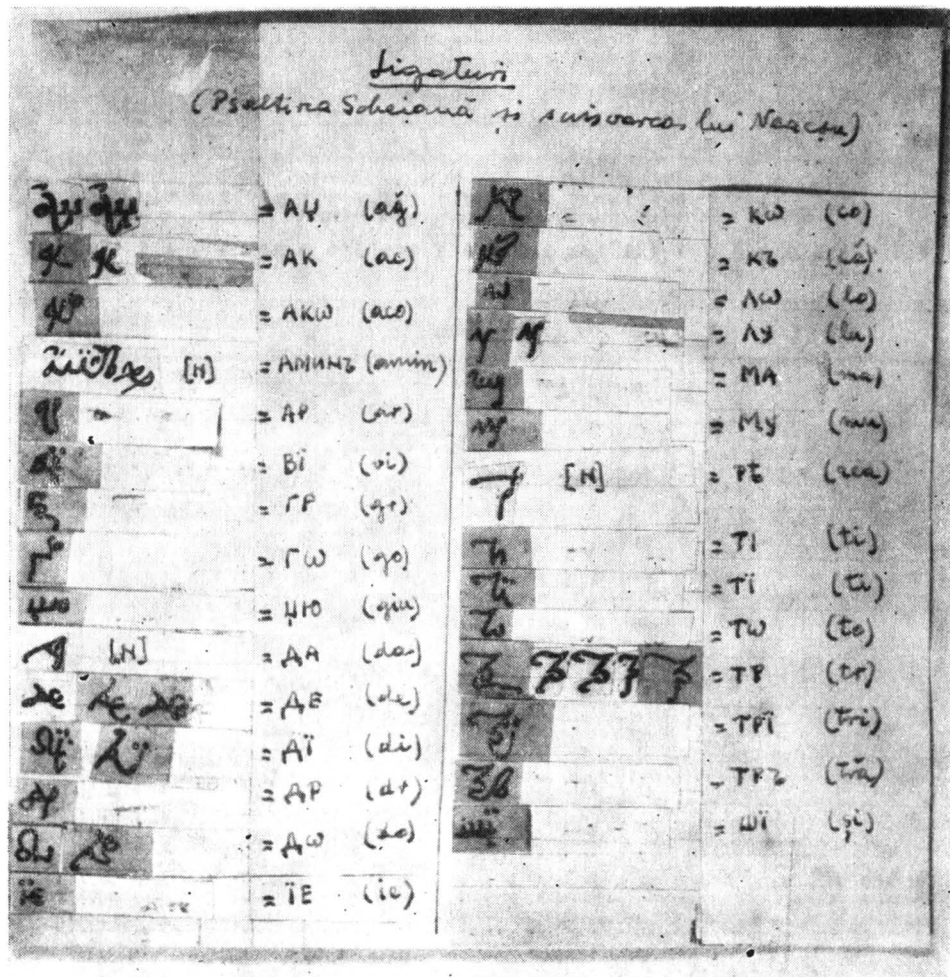 Ligaturi
(Psaltirea Scheiană și scrisoarea lui Neacșu)
= АЏ (ağ)
= АК (ac)
= АКѠ (aco)
[N] = АМИНЪ (amin)
= АР (ar)
= ВЇ (vi)
= ГР (gr)
= ГѠ (go)
= ЏЮ (giu)
[N] = ДА (da)
= ДЕ (de)
= ДЇ (di)
= ДР (dr)
= ДѠ (do)
= ЇЕ (ie)
= КѠ (co)
= КЪ (că)
= ЛѠ (lo)
= ЛУ (lu)
= МА (ma)
= МУ (mu)
[N] = РѢ (rea)
= ТІ (ti)
= ТЇ (ti)
= ТѠ (to)
= ТР (tr)
= ТРЇ (tri)
= ТРЪ (tră)
= ШЇ (și)